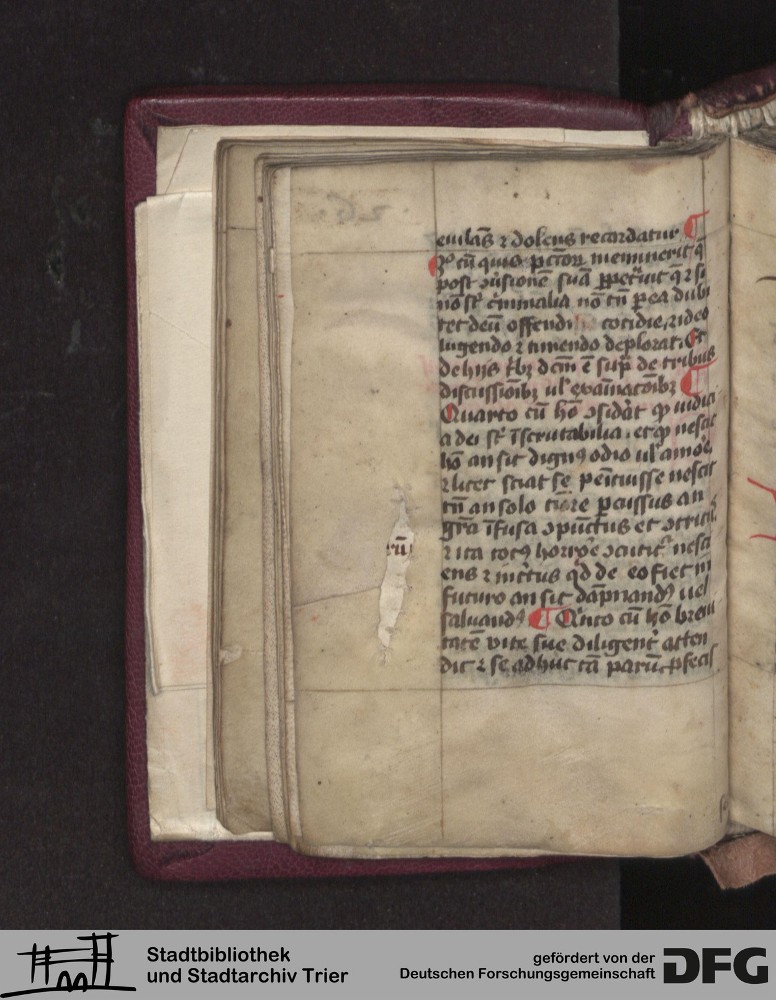 eiulās ⁊ dolens recordatur ¶
cū quis pctōꝝ meminerit
post suā
nō st̄ criminalia nō tn̄ dubi
tet deū offendi cotidie, ⁊ ideo
lugendo ⁊ timendo deplorat. Et
de hijs dcm̄ ē sup̄ de tribus
discussiōibꝫ ul' exaīnatōibꝫ ¶
Quarto cū hō ꝯsidāt ꝙ iudici
a dei st̄ īscrutabilia. et ꝙ nescit
hō an sit dignꝰ odio ul' amōe,
⁊ licet sciat se penituisse nescit
tn̄ an solo timōre ꝑcussus an
grā īfusa ꝯpūctus et ꝯtrit
⁊ ita totꝰ horrōe ꝯcutit᷑ nesci
ens ⁊ īnctus qd de eo fiet in
futuro an sit dāpnandꝰ uel
saluandꝰ ¶ Qīnto cū hō breui
tatē vite sue diligent᷑ atten
dit ⁊ se adhuc tā parū ꝓfecis
rū
Stadtbibliothek
und Stadtarchiv Trier
gefördert von der
Deutschen Forschungsgemeinschaft
DFG